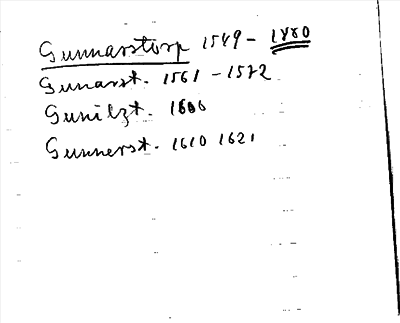 Gunnarstorp 1549 - 1880
Gunarst. 1561 - 1572
Gunilzt. 1606
Gunnerst. 1610 1621